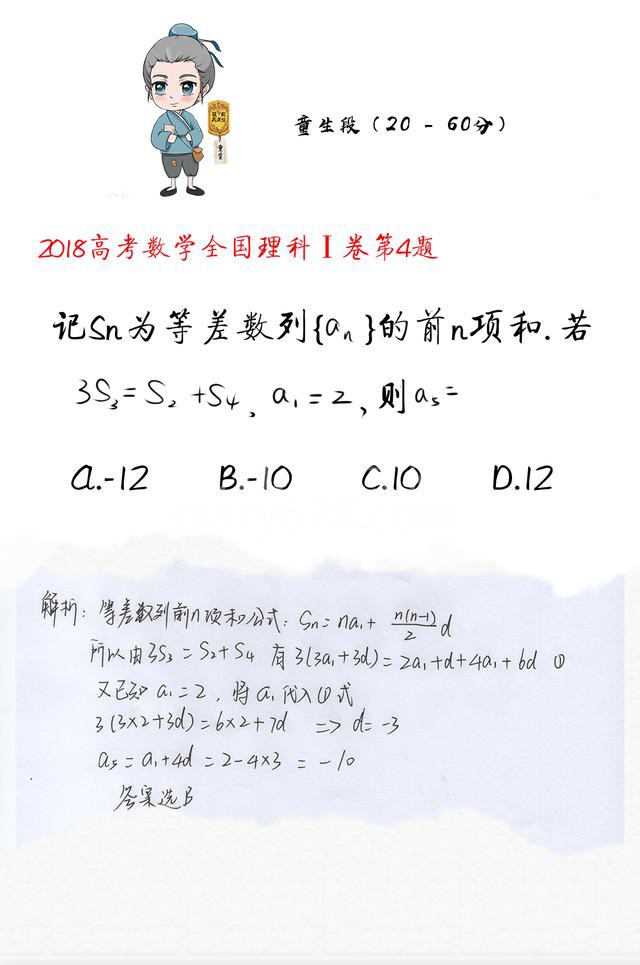 童生段（20 - 60分）
童生
2018高考数学全国理科Ⅰ卷第4题
记Sn为等差数列{an}的前n项和.若
3S3=S2+S4、a1=2,则a5=
A.-12 B.-10 C.10 D.12
解析：等差数列前n项和公式：Sn=na1+n(n-1)/2 d
所以由3S3=S2+S4 有3(3a1+3d)=2a1+d+4a1+6d ①
又已知a1=2，将a1代入①式
3(3×2+3d)=6×2+7d => d=-3
a5=a1+4d=2-4×3=-10
答案选B